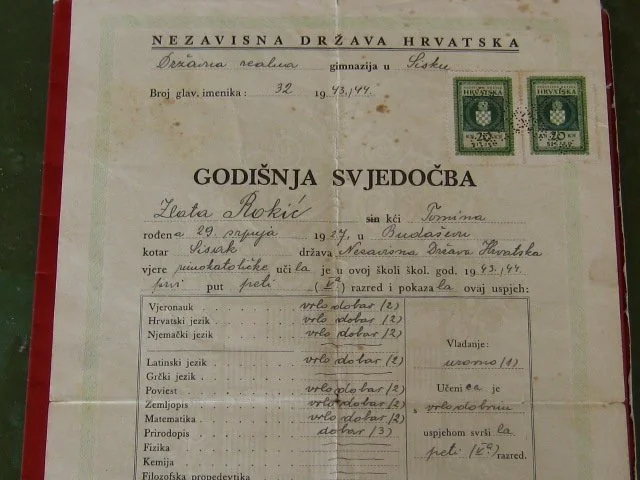 NEZAVISNA DRŽAVA HRVATSKA
Državna realna gimnazija u Sisku
Broj glav. imenika: 32 1943./44.
HRVATSKA HRVATSKA
20 20
GODIŠNJA SVJEDOČBA
Zlata Rokić sin kći Tomina
rođena 29. srpnja 1927, u Budaševu
kotar Sisak država Nezavisna Država Hrvatska
vjere rimokatoličke učila je u ovoj školi škol. god. 1943./44.
prvi put peti (Va) razred i pokazala ovaj uspjeh:
Vjeronauk . . . vrlo dobar (2)
Hrvatski jezik . . . vrlo dobar (2)
Njemački jezik . . . vrlo dobar (2)
Latinski jezik . . . vrlo dobar (2)
Grčki jezik . . .
Poviest . . . vrlo dobar (2)
Zemljopis . . . vrlo dobar (2)
Matematika . . . vrlo dobar (2)
Prirodopis . . . dobar (3)
Fizika . . .
Kemija . . .
Filozofska propedevtika
Vladanje:
uzorno (1)
Učenica je
s vrlo dobrim
uspjehom svršila
peti (Va) razred.